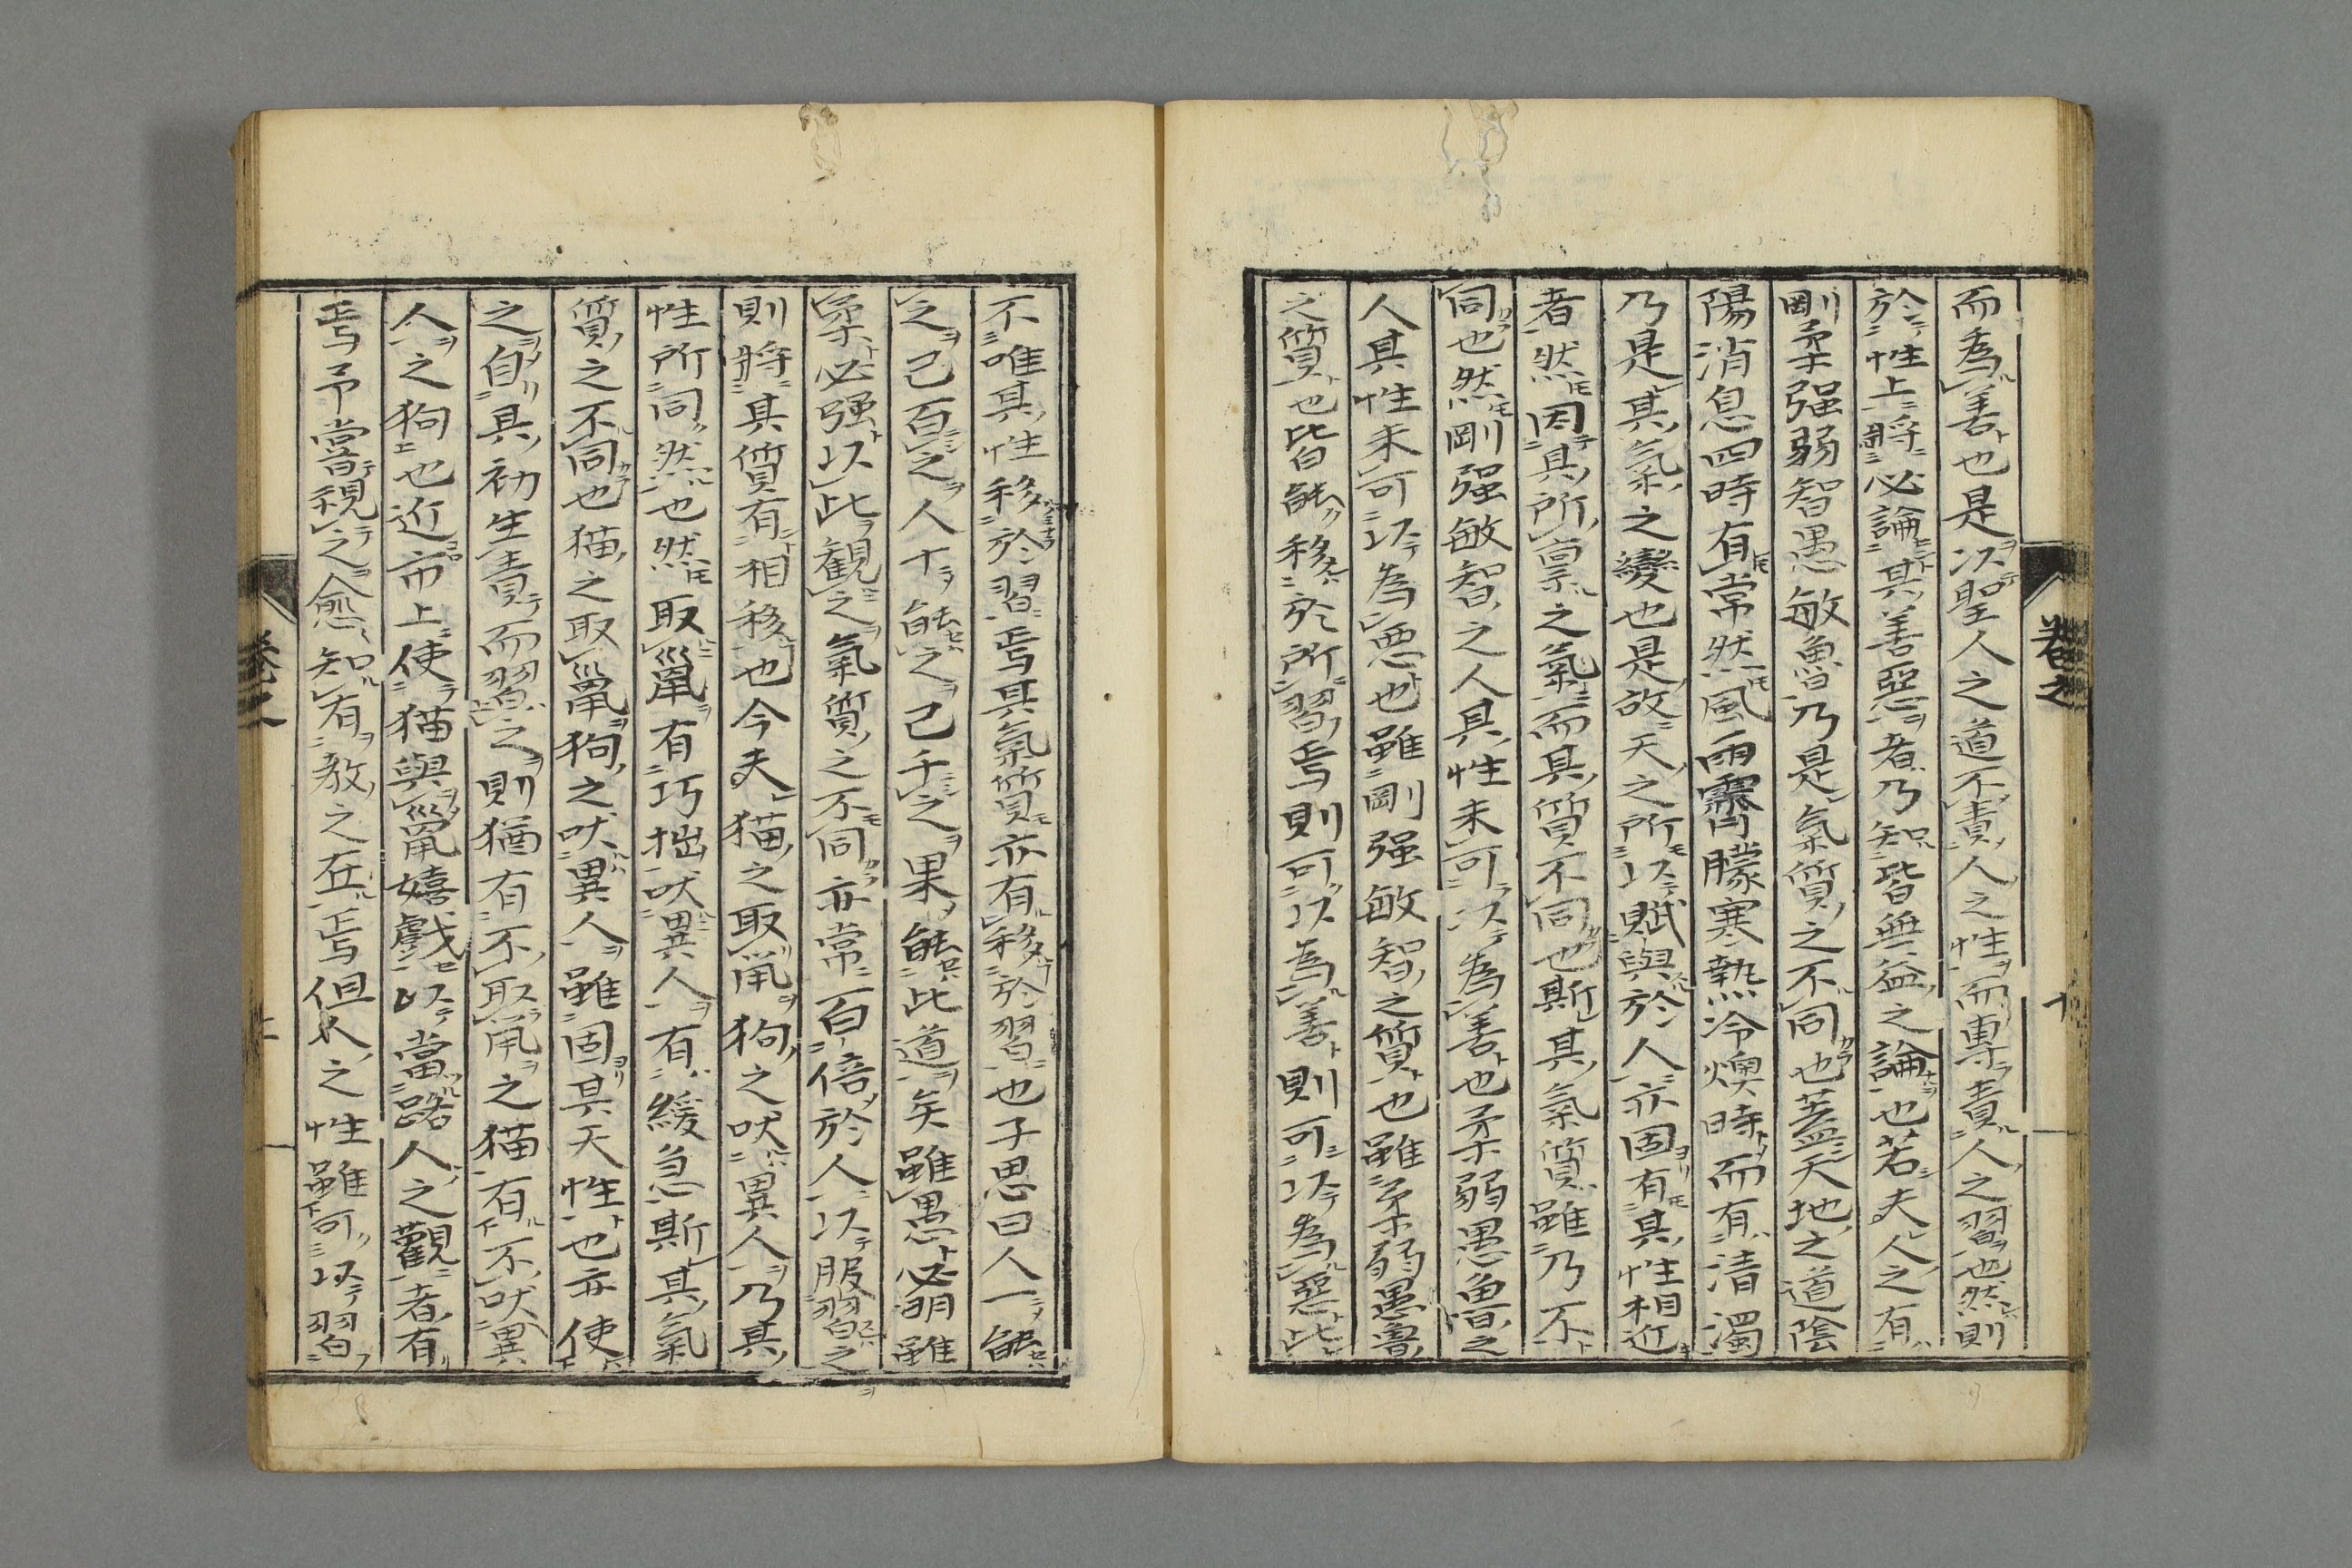 而為善也是以聖人之道不責人之性而專責人之習也然則
於性上將必論其善惡者乃知皆無益之論也若夫人之有
剛柔強弱智愚敏魯乃是氣質之不同也蓋天地之道陰
陽消息四時有常然風雨霽朦寒熱冷燠時而有清濁
乃是其氣之變也是故天之所以賦與於人亦固有其性相近
者然因其所稟之氣而其質不同也斯其氣質雖乃不
同也然剛强敏智之人其性未可以為善也柔弱愚魯之
人其性未可以為悪也雖剛强敏智之質也雖柔弱愚魯
之質也皆能移於所習焉則可以為善則可以為惡此
不唯其性移於習焉其氣質亦有移於習也子思曰人一能
之己百之人十能之己千之果能此道矣雖愚必明雖
柔必强以此観之氣質之不同亦常百倍於人以服習之
則將其質有相移也今夫猫之取鼠狗之吠異人乃其
性所同然也然取鼠有巧拙吠異人有緩急斯其氣
質之不同也猫之取鼠狗之吠異人雖固其天性也亦使
之自其初生責而習之則猶有不取鼠之猫有不吠異
人之狗也近市上使猫與鼠嬉戯以當路人之觀者有
焉予嘗視之愈知有教之在焉但犬之性雖可以習
卷之
十
卷之